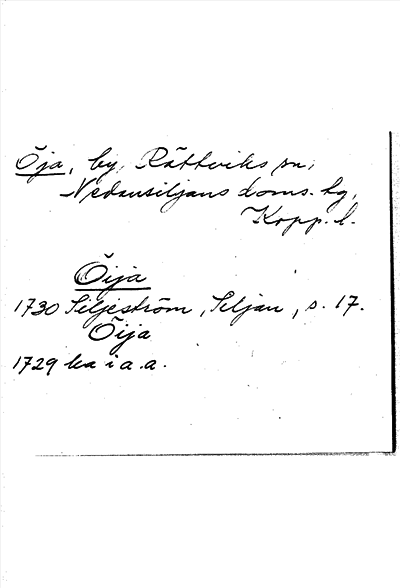 Öja, by, Rättviks sn,
Nedansiljans doms. hg,
Kopp. l.
Öija
1730 Siljeström, Siljan, s. 17.
Öija
1729 ka i a. a.